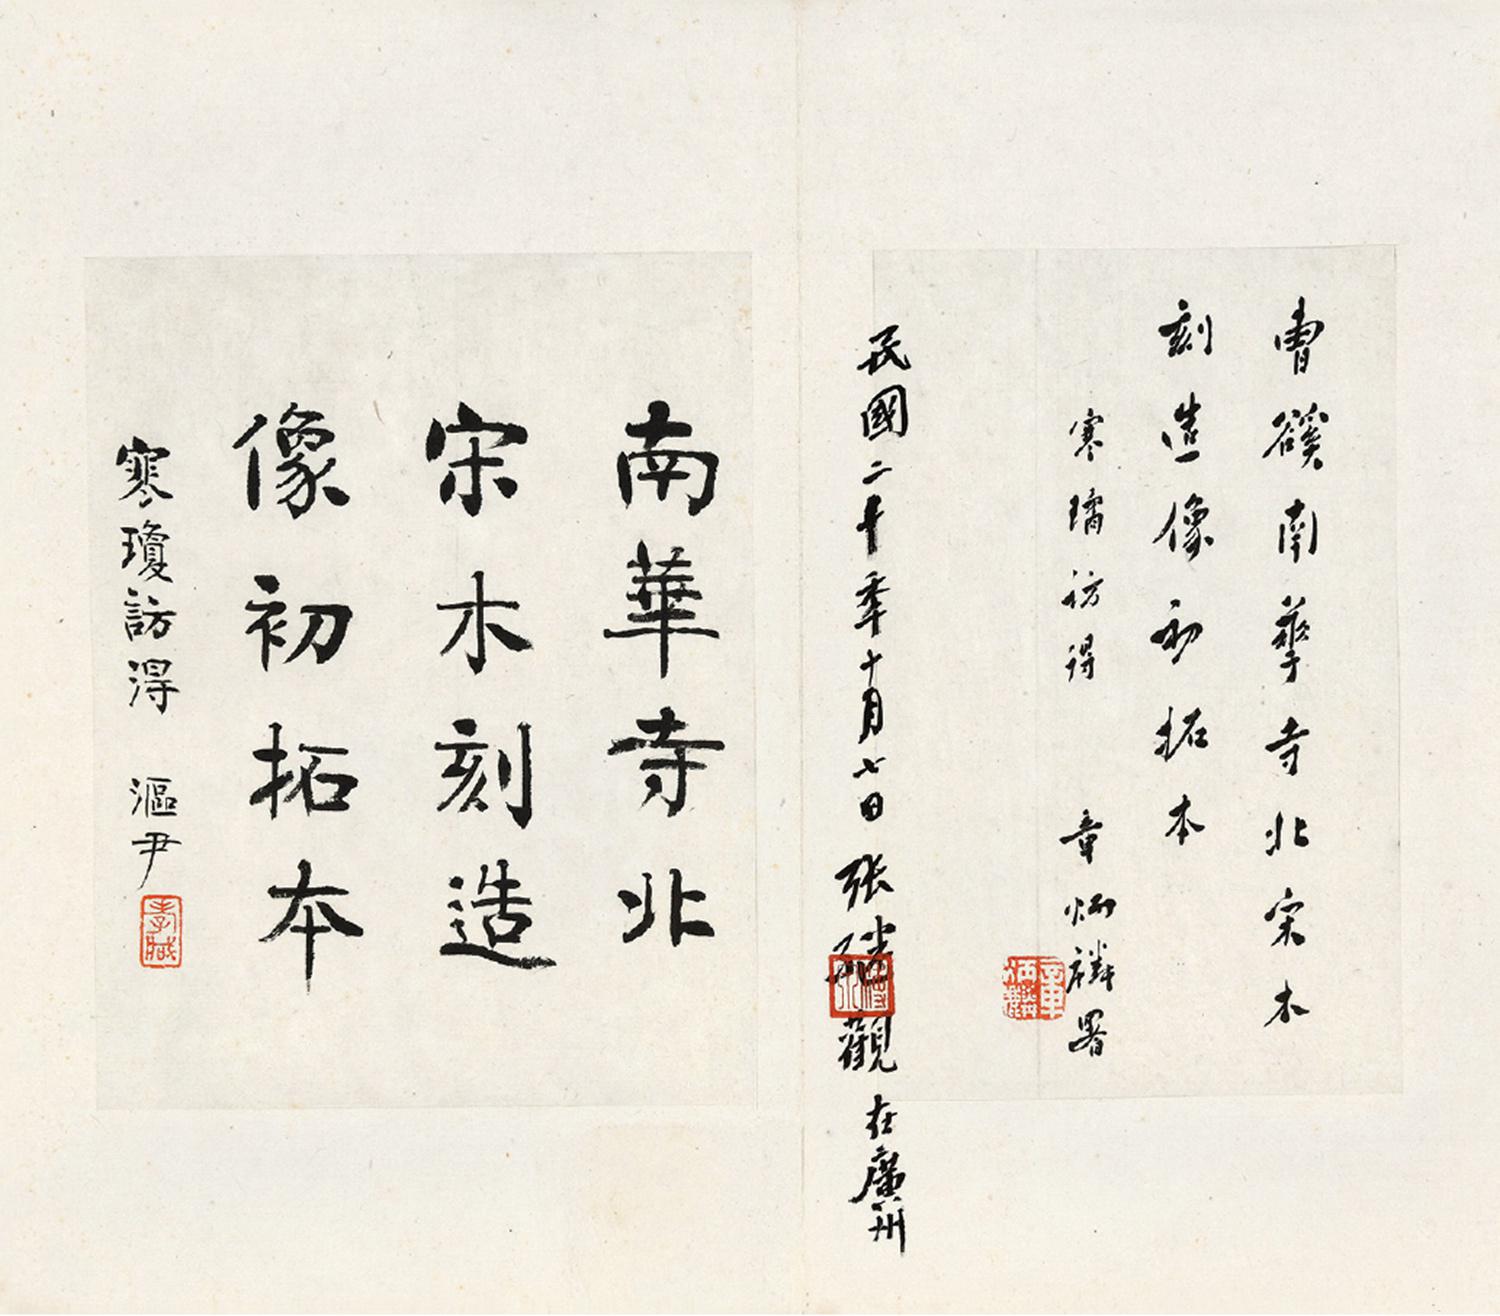 曹谿南華寺北宋木
刻造像初拓本
寒璚訪得 章炳麟署
章炳麟
民國二十秊十月七日張繼觀在廣州
溥泉
南華寺北
宋木刻造
像初拓本
寒瓊訪得 漚尹
孝臧